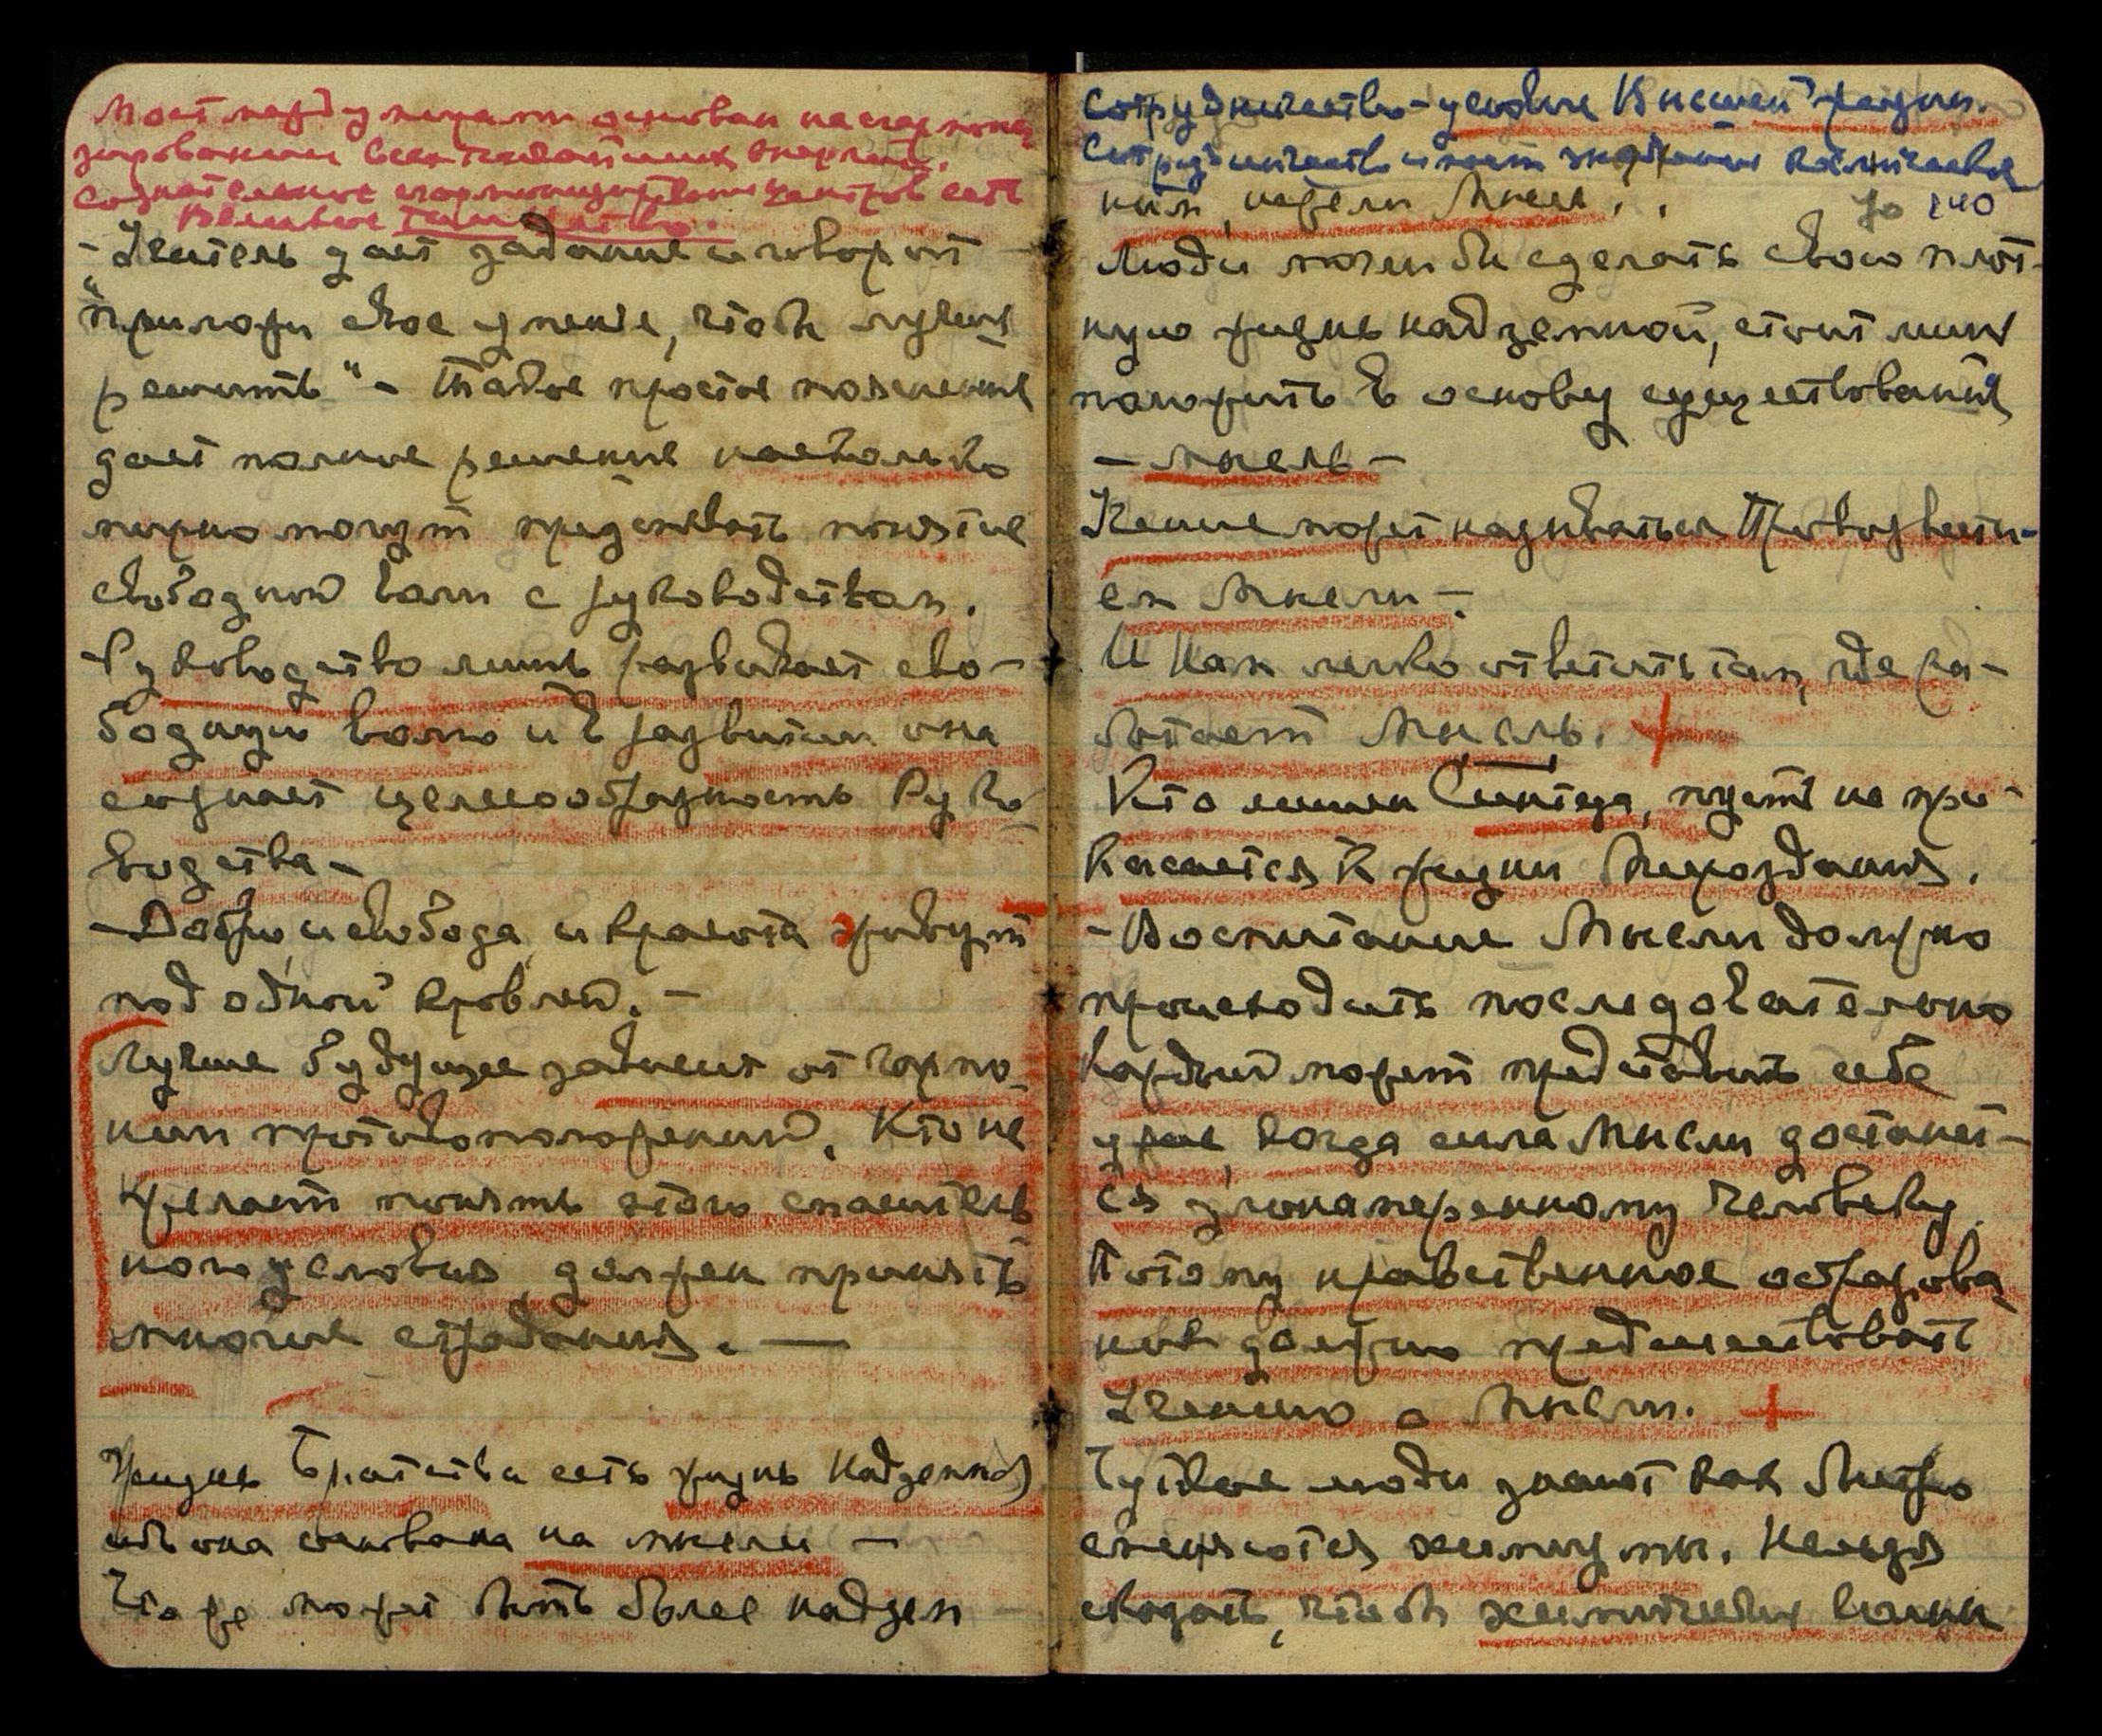 Мост между мирами основан на гармони
зировании всех тончайших энергий.
Сознательное гармонизирование центров есть
великое таинство.
- Учитель дает задание и говорит -
"приложи свое умение, чтоб лучше
решить" - Такое простое пояснение
дает полное решение насколько
мирно могут преуспевать понятие
свободной воли с руководством.
- Руководство лишь развивает сво-
бодную волю и в развитии она
сознает целесообразность Руко-
водства -
- Добро, и свобода, и красота живут
под одной кровлей. -
Лучшее будущее зависит от гармо-
нии противоположений. Кто не
желает понять этого спаситель
ного условия, должен принять
многие страдания. —
Жизнь Братства есть жизнь надземная
ибо она основана на мысли -
Что же может быть более надзем
Сотрудничество - условие Высшей жизни.
ним, нежели мысль. До 240
Люди могли бы сделать свою плот-
ную жизнь надземной, стоит лишь
положить в основу существования
- мысль -
Учение может называться Провозвести-
ем Мысли -.
И Нам легко ответить там, где ра-
ботает Мысль. +
Кто лишен Синтеза, пусть не при-
касается к жизни Мироздания.
- Воспитание Мысли должно
происходить последовательно
каждый может представить себе
ужас, когда сила Мысли достанет-
ся злонамеренному человеку.
Потому нравственное образова
ние должно предшествовать
Учению о Мысли. +
Чуткие люди знают как быстро
сменяются химизмы. Нельзя
сказать, чтоб химические волны